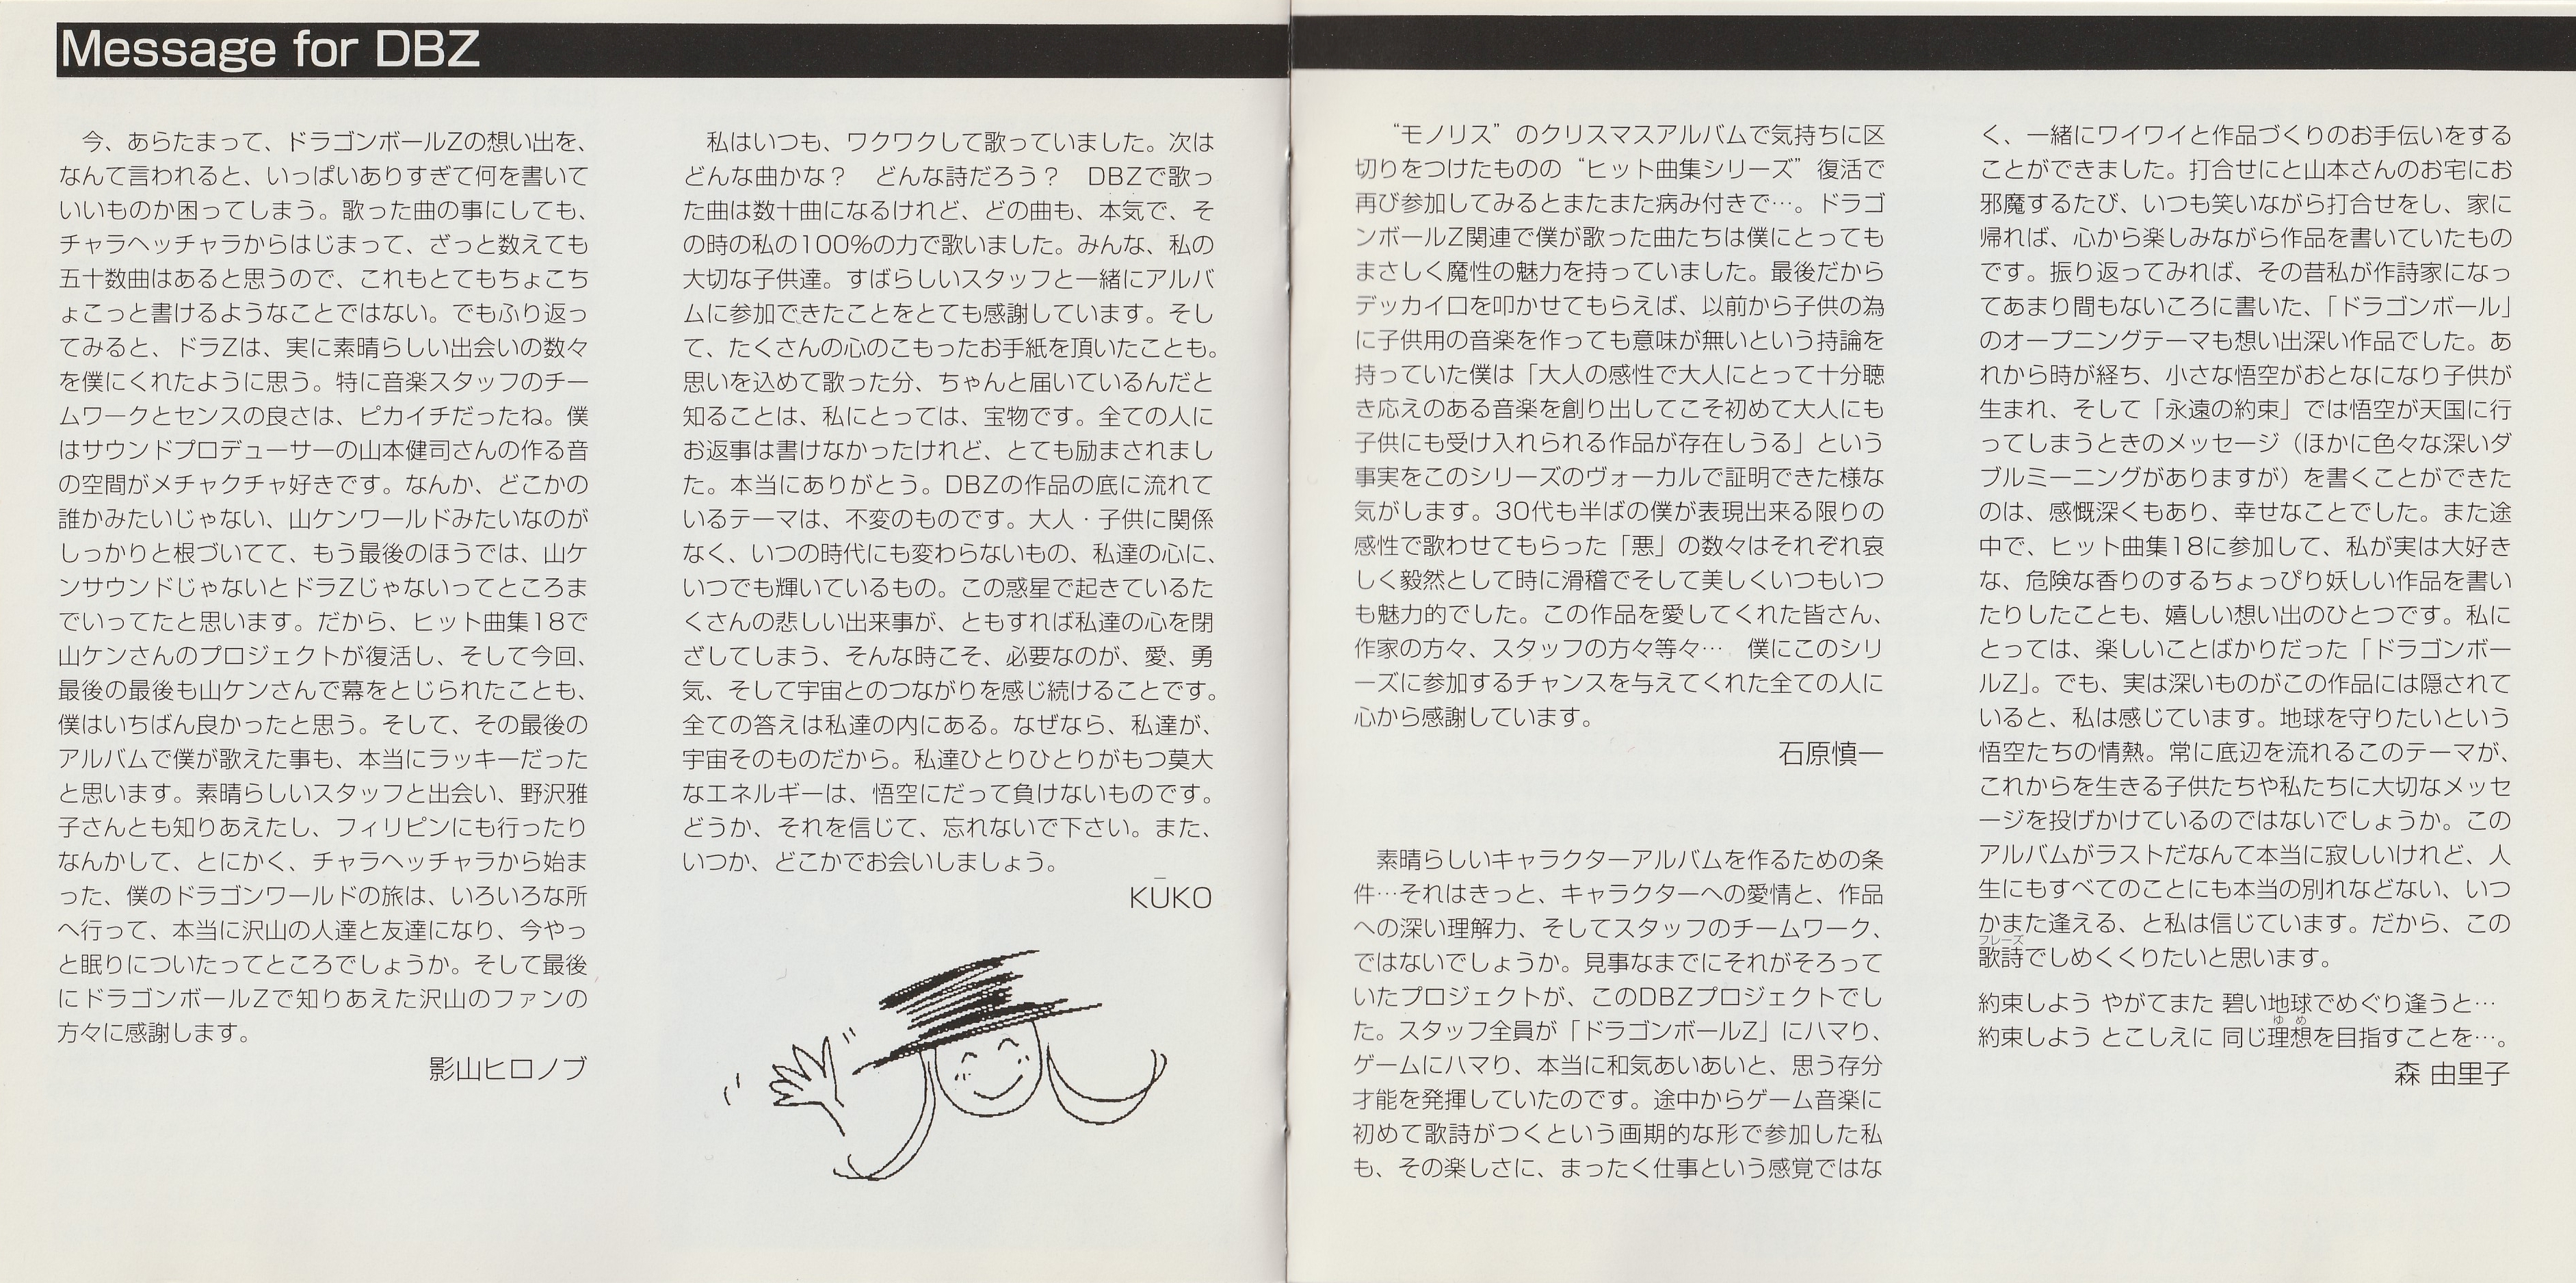 Message for DBZ
今、あらたまって、ドラゴンボールZの想い出を、
なんて言われると、いっぱいありすぎて何を書いて
いいものか困ってしまう。歌った曲の事にしても、
チャラヘッチャラからはじまって、ざっと数えても
五十数曲はあると思うので、これもとてもちょこち
ょこっと書けるようなことではない。でもふり返っ
てみると、ドラZは、実に素晴らしい出会いの数々
を僕にくれたように思う。特に音楽スタッフのチー
ムワークとセンスの良さは、ピカイチだったね。僕
はサウンドプロデューサーの山本健司さんの作る音
の空間がメチャクチャ好きです。なんか、どこかの
誰かみたいじゃない、山ケンワールドみたいなのが
しっかりと根づいてて、もう最後のほうでは、山ケ
ンサウンドじゃないとドラZじゃないってところま
でいってたと思います。だから、ヒット曲集18で
山ケンさんのプロジェクトが復活し、そして今回、
最後の最後も山ケンさんで幕をとじられたことも、
僕はいちばん良かったと思う。そして、その最後の
アルバムで僕が歌えた事も、本当にラッキーだった
と思います。素晴らしいスタッフと出会い、野沢雅
子さんとも知りあえたし、フィリピンにも行ったり
なんかして、とにかく、チャラヘッチャラから始ま
った、僕のドラゴンワールドの旅は、いろいろな所
へ行って、本当に沢山の人達と友達になり、今やっ
と眠りについたってところでしょうか。そして最後
にドラゴンボールZで知りあえた沢山のファンの
方々に感謝します。
影山ヒロノブ
私はいつも、ワクワクして歌っていました。次は
どんな曲かな？　どんな詩だろう？　DBZで歌っ
た曲は数十曲になるけれど、どの曲も、本気で、そ
の時の私の100%の力で歌いました。みんな、私の
大切な子供達。すばらしいスタッフと一緒にアルバ
ムに参加できたことをとても感謝しています。そし
て、たくさんの心のこもったお手紙を頂いたことも。
思いを込めて歌った分、ちゃんと届いているんだと
知ることは、私にとっては、宝物です。全ての人に
お返事は書けなかったけれど、とても励まされまし
た。本当にありがとう。DBZの作品の底に流れて
いるテーマは、不変のものです。大人・子供に関係
なく、いつの時代にも変わらないもの、私達の心に、
いつでも輝いているもの。この惑星で起きているた
くさんの悲しい出来事が、ともすれば私達の心を閉
ざしてしまう、そんな時こそ、必要なのが、愛、勇
気、そして宇宙とのつながりを感じ続けることです。
全ての答えは私達の内にある。なぜなら、私達が、
宇宙そのものだから。私達ひとりひとりがもつ莫大
なエネルギーは、悟空にだって負けないものです。
どうか、それを信じて、忘れないで下さい。また、
いつか、どこかでお会いしましょう。
KŪKO
“モノリス”のクリスマスアルバムで気持ちに区
切りをつけたものの“ヒット曲集シリーズ”復活で
再び参加してみるとまたまた病み付きで…。ドラゴ
ンボールZ関連で僕が歌った曲たちは僕にとっても
まさしく魔性の魅力を持っていました。最後だから
デッカイ口を叩かせてもらえば、以前から子供の為
に子供用の音楽を作っても意味が無いという持論を
持っていた僕は「大人の感性で大人にとって十分聴
き応えのある音楽を創り出してこそ初めて大人にも
子供にも受け入れられる作品が存在しうる」という
事実をこのシリーズのヴォーカルで証明できた様な
気がします。30代も半ばの僕が表現出来る限りの
感性で歌わせてもらった「悪」の数々はそれぞれ哀
しく毅然として時に滑稽でそして美しくいつもいつ
も魅力的でした。この作品を愛してくれた皆さん、
作家の方々、スタッフの方々等々…　僕にこのシリ
ーズに参加するチャンスを与えてくれた全ての人に
心から感謝しています。
石原慎一
素晴らしいキャラクターアルバムを作るための条
件…それはきっと、キャラクターへの愛情と、作品
への深い理解力、そしてスタッフのチームワーク、
ではないでしょうか。見事なまでにそれがそろって
いたプロジェクトが、このDBZプロジェクトでし
た。スタッフ全員が「ドラゴンボールZ」にハマり、
ゲームにハマり、本当に和気あいあいと、思う存分
才能を発揮していたのです。途中からゲーム音楽に
初めて歌詩がつくという画期的な形で参加した私
も、その楽しさに、まったく仕事という感覚ではな
く、一緒にワイワイと作品づくりのお手伝いをする
ことができました。打合せにと山本さんのお宅にお
邪魔するたび、いつも笑いながら打合せをし、家に
帰れば、心から楽しみながら作品を書いていたもの
です。振り返ってみれば、その昔私が作詩家になっ
てあまり間もないころに書いた、「ドラゴンボール」
のオープニングテーマも想い出深い作品でした。あ
れから時が経ち、小さな悟空がおとなになり子供が
生まれ、そして「永遠の約束」では悟空が天国に行
ってしまうときのメッセージ（ほかに色々な深いダ
ブルミーニングがありますが）を書くことができた
のは、感慨深くもあり、幸せなことでした。また途
中で、ヒット曲集18に参加して、私が実は大好き
な、危険な香りのするちょっぴり妖しい作品を書い
たりしたことも、嬉しい想い出のひとつです。私に
とっては、楽しいことばかりだった「ドラゴンボー
ルZ」。でも、実は深いものがこの作品には隠されて
いると、私は感じています。地球を守りたいという
悟空たちの情熱。常に底辺を流れるこのテーマが、
これからを生きる子供たちや私たちに大切なメッセ
ージを投げかけているのではないでしょうか。この
アルバムがラストだなんて本当に寂しいけれど、人
生にもすべてのことにも本当の別れなどない、いつ
かまた逢える、と私は信じています。だから、この
フレーズ
歌詩でしめくくりたいと思います。
約束しよう やがてまた 碧い地球でめぐり逢うと…
ゆめ
約束しよう とこしえに 同じ理想を目指すことを…。
森 由里子